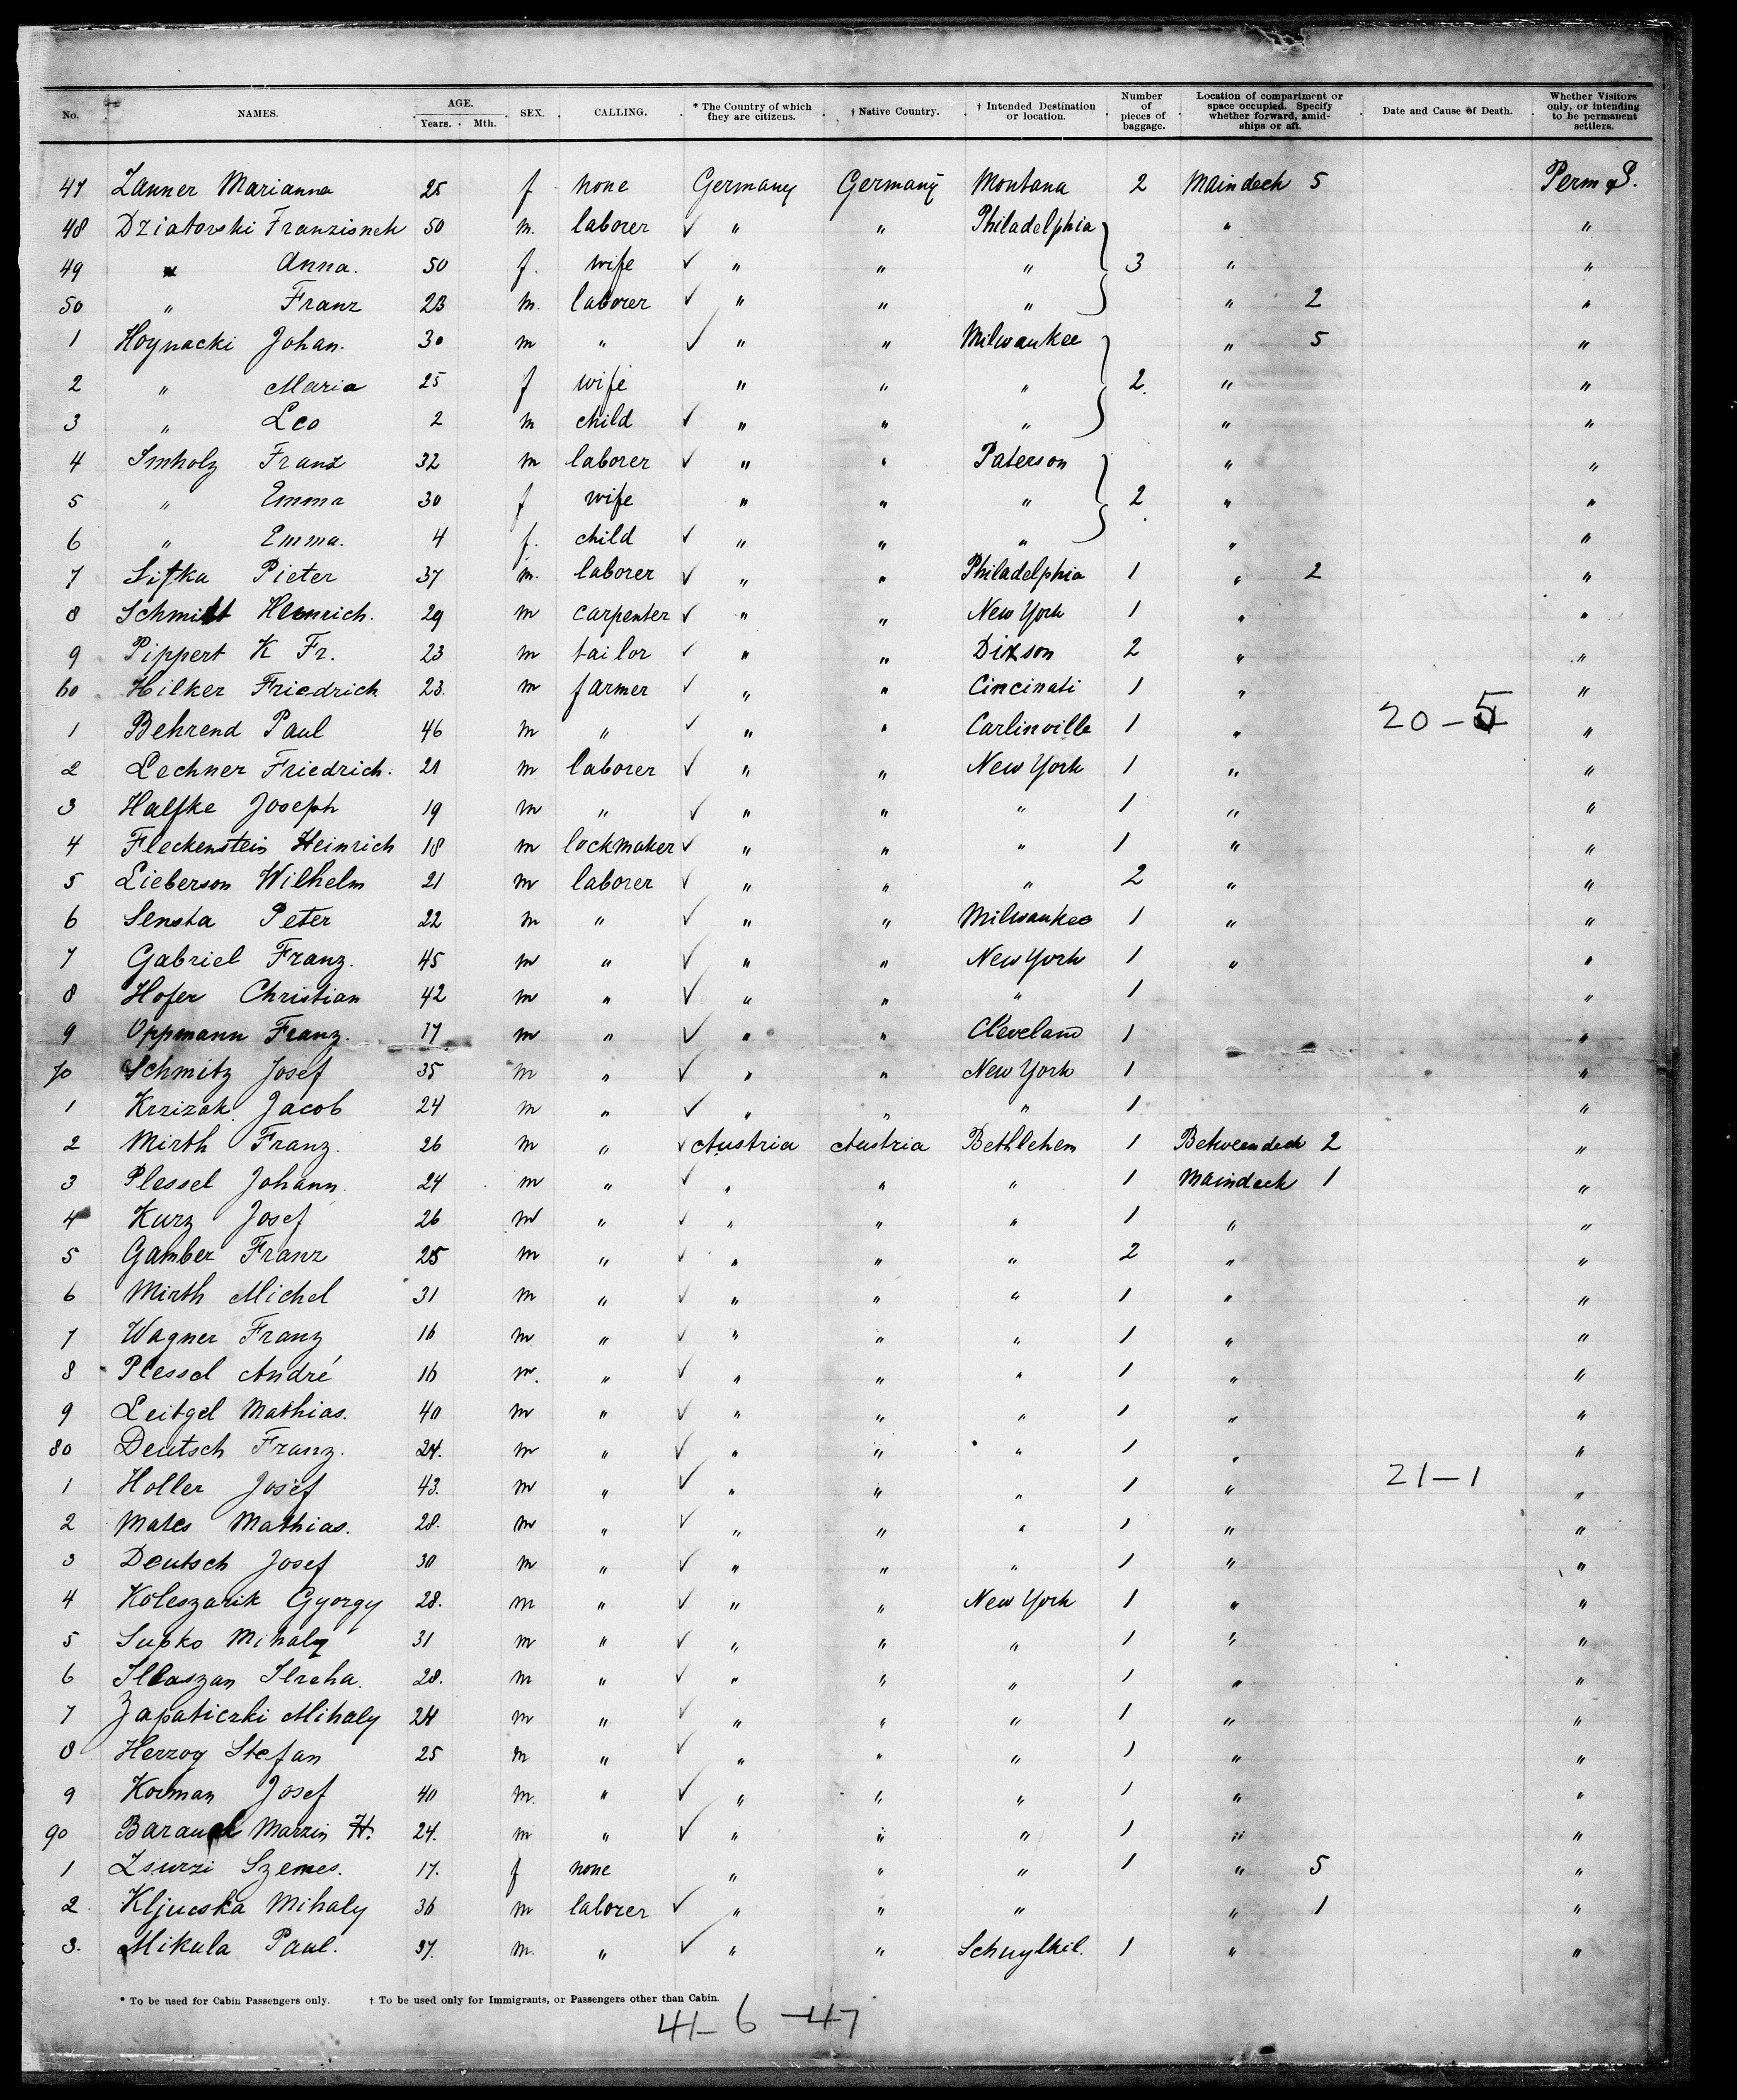 No. NAMES. AGE. Years. Mth. SEX. CALLING. * The Country of which they are citizens. † Native Country. † Intended Destination or location. Number of pieces of baggage. Location of compartment or space occupied. Specify whether forward, amidships or aft. Date and Cause of Death. Whether Visitors only, or intending to be permanent settlers.
47 Zanner Marianna 25 f none Germany Germany Montana 2 Maindeck 5 Perm S.
48 Dziatorski Franzisnek 50 m. laborer ✓ " " Philadelphia " "
49 " Anna. 50 f. wife ✓ " " " 3 " "
50 " Franz 23 m. laborer ✓ " " " " 2 "
1 Hoynacki Johan. 30 m " ✓ " " Milwaukee " 5 "
2 " Maria 25 f wife " " " 2. " "
3 " Leo 2 m child ✓ " " " " "
4 Imholz Franz 32 m laborer ✓ " " Paterson " "
5 " Emma 30 f wife " " " 2 " "
6 " Emma. 4 f. child ✓ " " " " "
7 Sitka Pieter 37 m. laborer ✓ " " Philadelphia 1 " 2 "
8 Schmidt Heinrich. 29 m carpenter ✓ " " New York 1 " "
9 Pippert K Fr. 23 m tailor ✓ " " Dixson 2 " "
60 Hilker Friedrich 23. m farmer ✓ " " Cincinati 1 " "
1 Behrend Paul 46 m " ✓ " " Carlinville 1 " 20-5 "
2 Lechner Friedrich. 21 m laborer ✓ " " New York 1 " "
3 Halfke Joseph 19 m " ✓ " " " 1 " "
4 Fleckenstein Heinrich 18 m lockmaker ✓ " " " 1 " "
5 Lieberson Wilhelm 21 m laborer ✓ " " " 2 " "
6 Sensta Peter 22 m " ✓ " " Milwaukee 1 " "
7 Gabriel Franz. 45 m " ✓ " " New York 1 " "
8 Hofer Christian 42 m " ✓ " " " 1 "
9 Oppmann Franz. 17 m " ✓ " " Cleveland 1 "
70 Schmitz Josef 35 m " ✓ " " New York 1 "
1 Krzizak Jacob 24 m " ✓ " " " 1 "
2 Mirth Franz. 26 m " ✓ Austria Austria Bethlehem 1 Betweendeck 2 "
3 Plessel Johann. 24 m " ✓ " " " 1 Maindeck 1 "
4 Kurz Josef 26 m " ✓ " " " 1 " "
5 Gamber Franz 25 m " ✓ " " " 2 " "
6 Mirth Michel 31 m " ✓ " " " 1 " "
7 Wagner Franz 16 m " ✓ " " " 1 " "
8 Plessel André 16 m. " ✓ " " " 1 " "
9 Leitgel Mathias. 40 m " ✓ " " " 1 " "
80 Deutsch Franz. 24. m " ✓ " " " 1 " "
1 Holler Josef 43. m " ✓ " " " 1 " 21-1 "
2 Mates Mathias. 28. m " ✓ " " " 1 " "
3 Deutsch Josef 30 m " ✓ " " " 1 " "
4 Koleszarik Gyorgy 28. m " ✓ " " New York 1 " "
5 Supko Mihaly 31 m " ✓ " " " 1 " "
6 Illaszan Ilreha. 28. m " ✓ " " " 1 " "
7 Zapaticzki Mihaly 24 m " ✓ " " " 1 " "
8 Herzog Stefan 25 m " ✓ " " " 1 " "
9 Korman Josef 40 m. " ✓ " " " 1 " "
90 Marzin H. 24. m " ✓ " " " 1 " "
1 Zsurzi Szemes. 17. f none " " " 1 " 5 "
2. Kljucska Mihaly 36 m laborer ✓ " " " " 1 "
3. Mikula Paul. 37. m. " ✓ " " Schuylkil. 1 " "
* To be used for Cabin Passengers only. † To be used only for Immigrants, or Passengers other than Cabin.
41-6-47